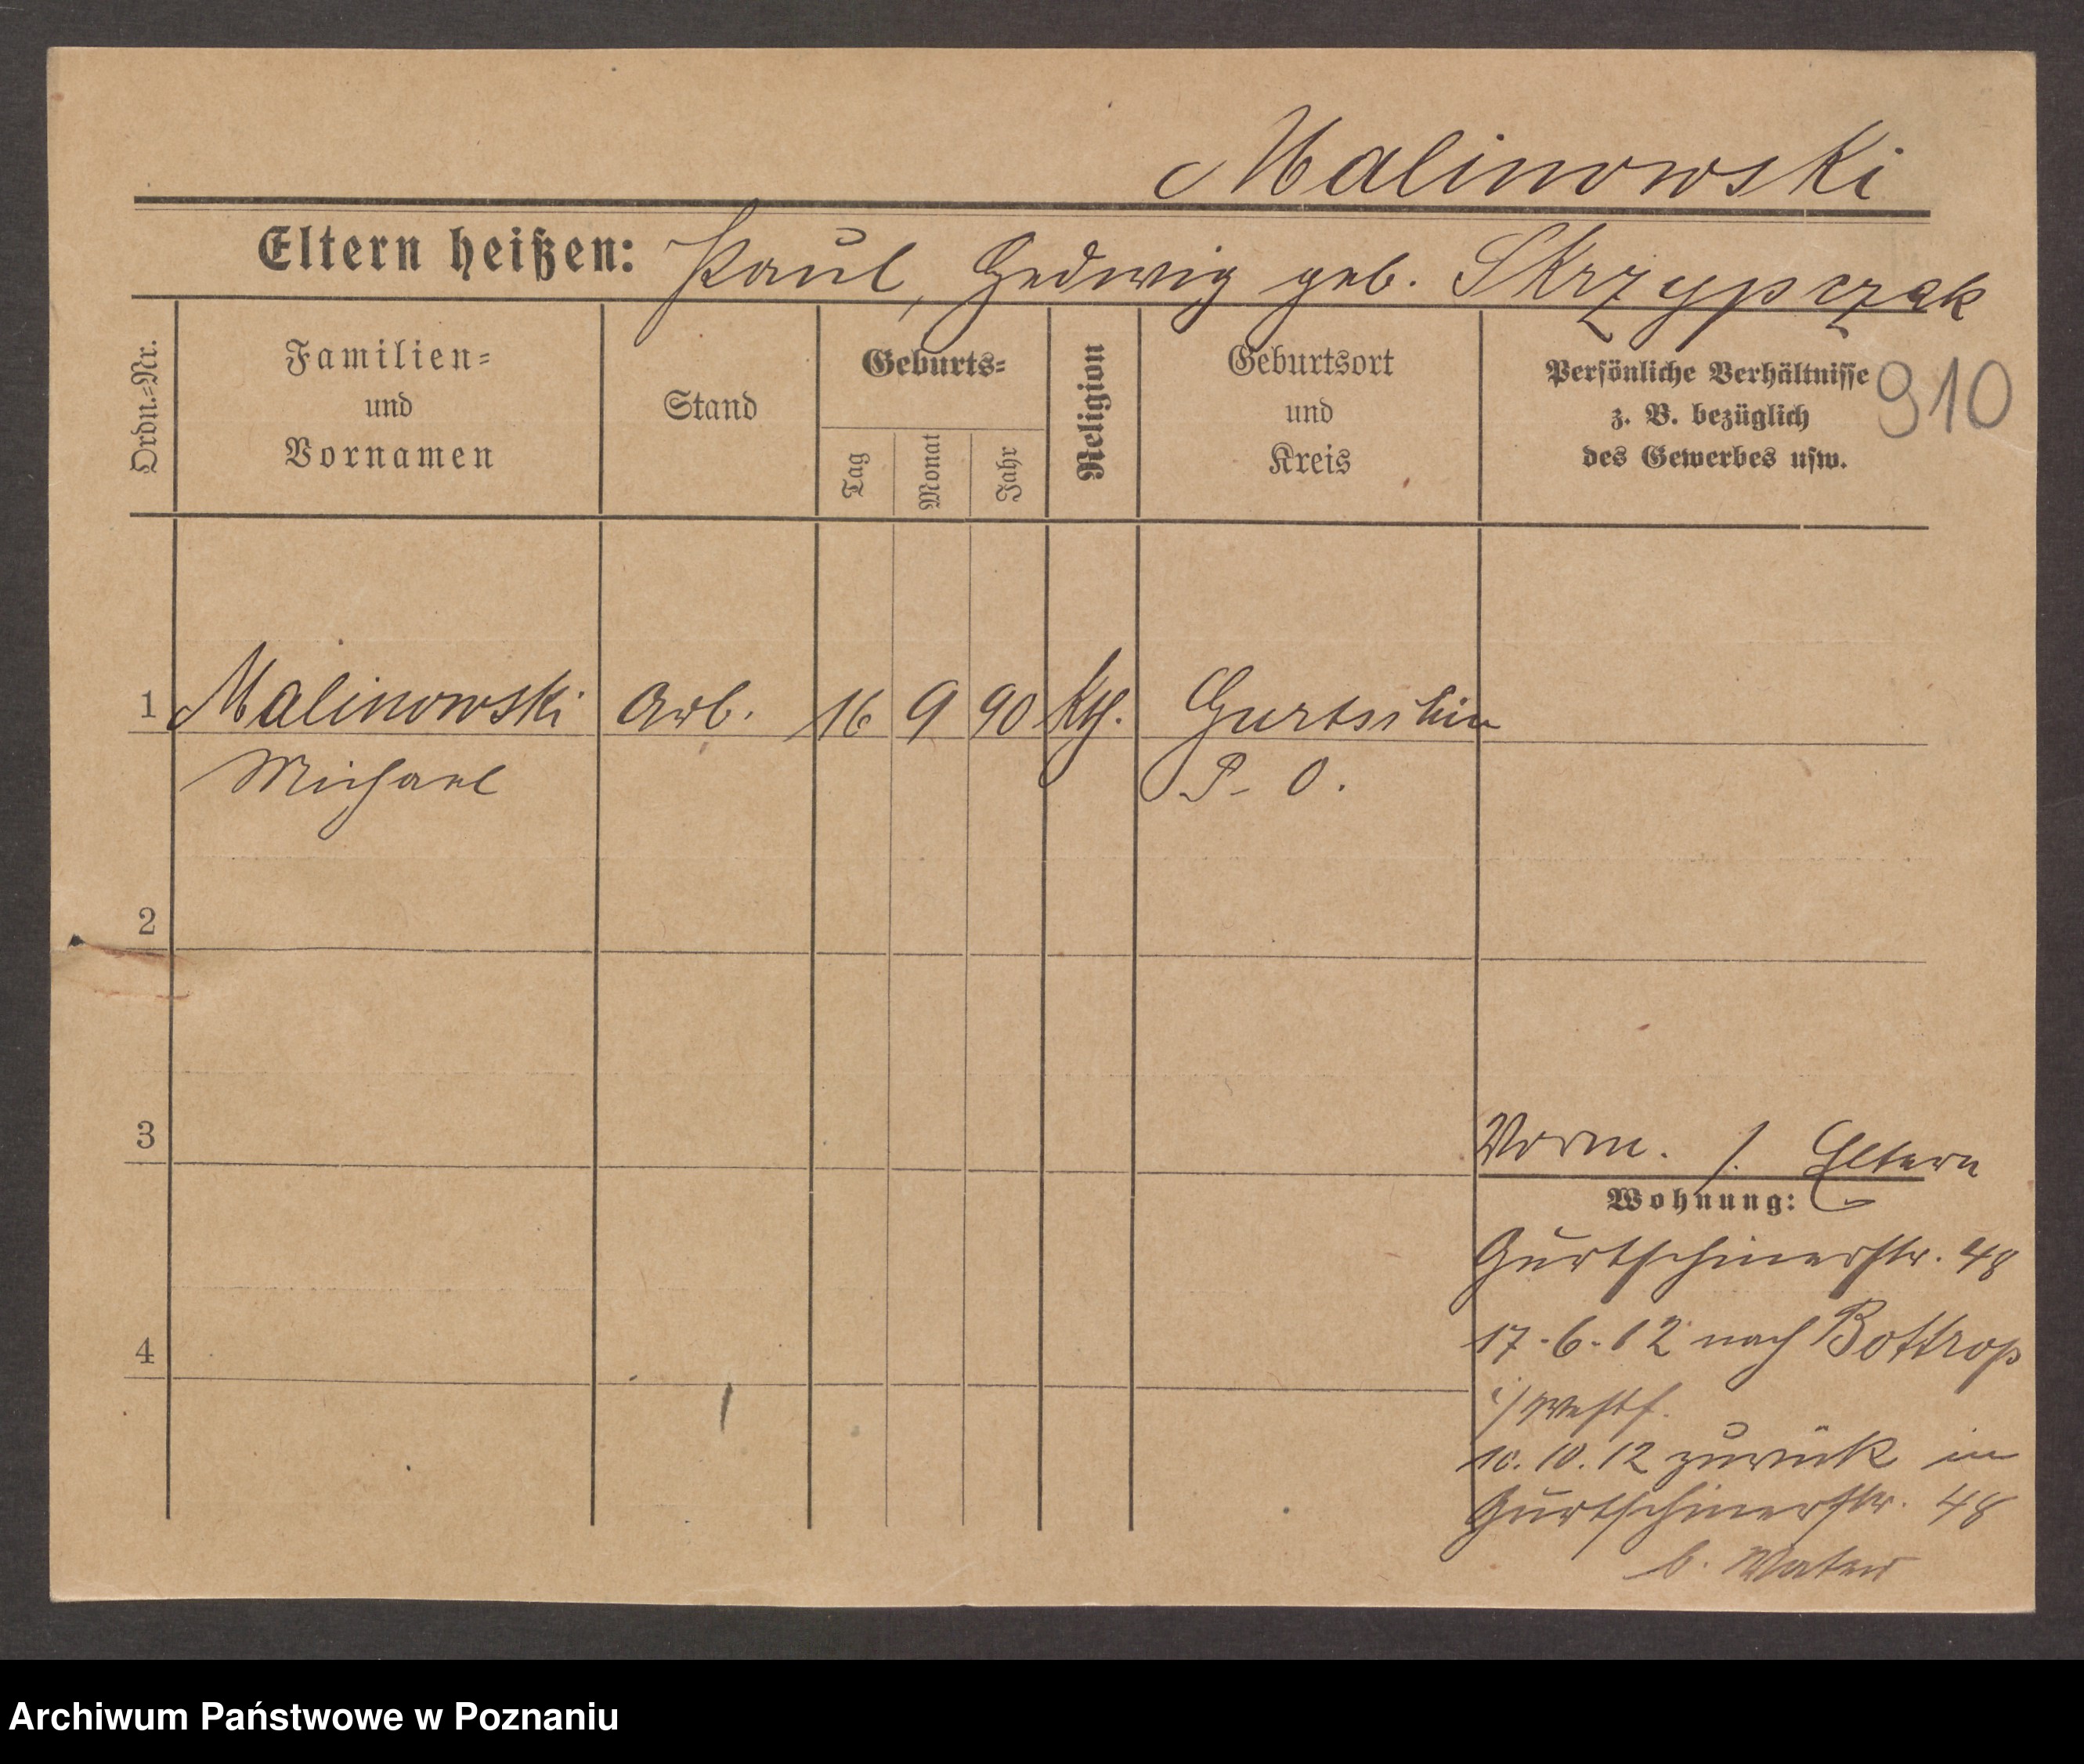 Malinowski
Eltern heißen: Paul, Hedwig geb. Skrzypczak
Ordn.=Nr.
Familien=
und
Vornamen
Stand
Geburts=
Tag
Monat
Jahr
Religion
Geburtsort
und
Kreis
Persönliche Verhältnisse
z. B. bezüglich
des Gewerbes usw.
910
1 Malinowski Arb. 16 9 90 kth. Gurtschin
Michael P. O.
2
3
Vorm. s. Eltern
Wohnung:
Gurtschinerstr. 48
17.6.12 nach Bottrop
i/Westf.
10.10.12 zurück in
Gurtschinerstr. 48
b. Vater
4
Archiwum Państwowe w Poznaniu